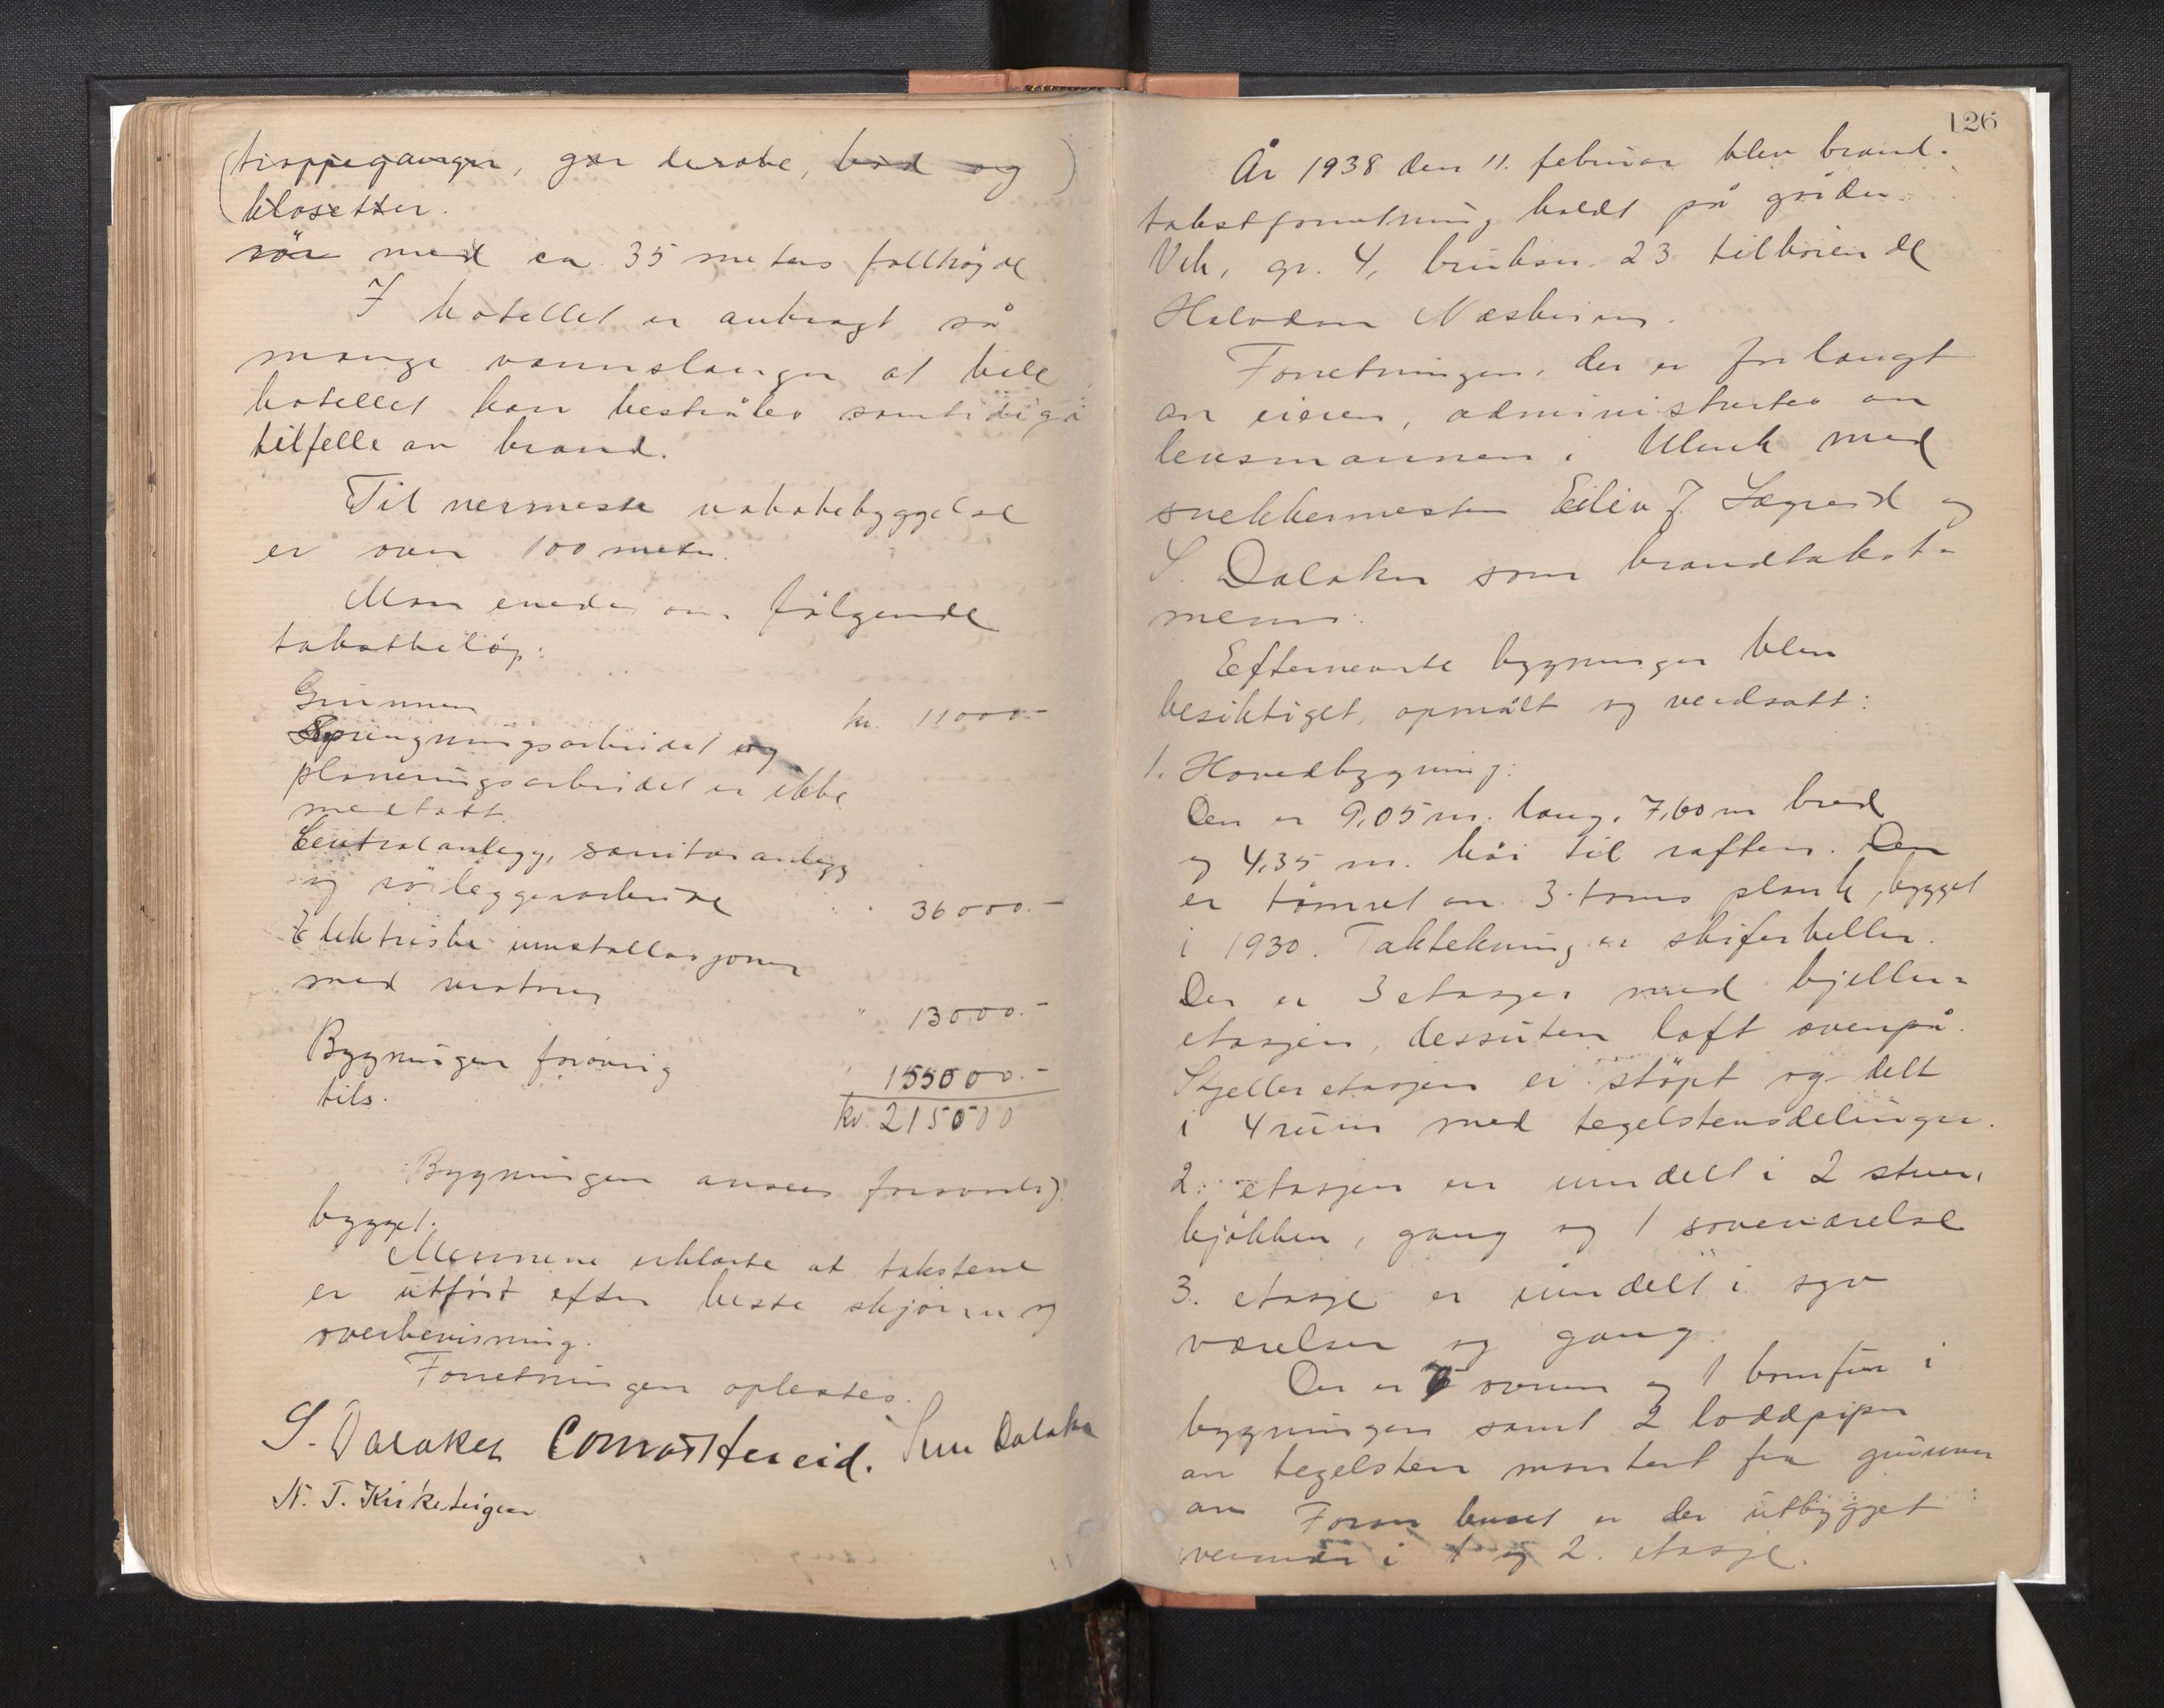 (trappeganger, garderobe, bad og)
klosetter.
rör med ca 35 meters fallhøyde
I hotellet er anbragt så
mange vannslanger at hele
hotellet kan bestråles samtidig i
tilfelle av brand.
Til nermeste nabobebyggelse
er over 100 meter.
Man enedes om følgende
takstbeløp:
Grunnen kr. 11000.-
Sprengningsarbeidet og
planeringsarbeidet er ikke
medtatt.
Centralanlegg, sanitæranlegg
og rörleggerarbeide " 36000.-
Elektriske innstallasjoner
med motorer " 13000.-
Bygningen forøvrig " 155000.-
tils. kr. 215000
Bygningen ansees forsvarlig
bygget.
Mennene erklærte at takstene
er utført efter beste skjønn og
overbevisning.
Forretningen oplestes.
S. Dalaker Conrad Hereid. Dalaker
N. T. Kirketeigen
126
År 1938 den 11. februar blev brand-
takstforretning holdt på gården
Vik, gr. 4, bruksnr. 23 tilhørende
Halvdan Næsheim.
Forretningen, der er forlangt
av eieren, administrertes av
lensmannen i Ulvik med
snekkermester Eiliv J. Lægreid og
S. Dalaker som brandtakst-
menn.
Efternevnte bygninger blev
besiktiget, opmålt og verdsatt:
1. Hovedbygning:
Den er 9,05 m. lang, 7,60 m bred
og 4,35 m. høi til raften. Den
er tømret av 3-toms plank, bygget
i 1930. Taktekning er skiferheller.
Der er 3 etasjer med kjeller-
etasjen, dessuten loft ovenpå.
Kjelleretasjen er støpt og delt
i 4 rum med tegelstensdelinger.
2. etasjen er inndelt i 2 stuer,
kjøkken, gang og 1 soveværelse
3. etasje er inndelt i syv
værelser og gang.
Der er 5 ovner og 1 komfur i
bygningen samt 2 loddpiper
av tegelsten montert fra grunnen
av Foran huset er der utbygget
veranda i 1 og 2. etasje.